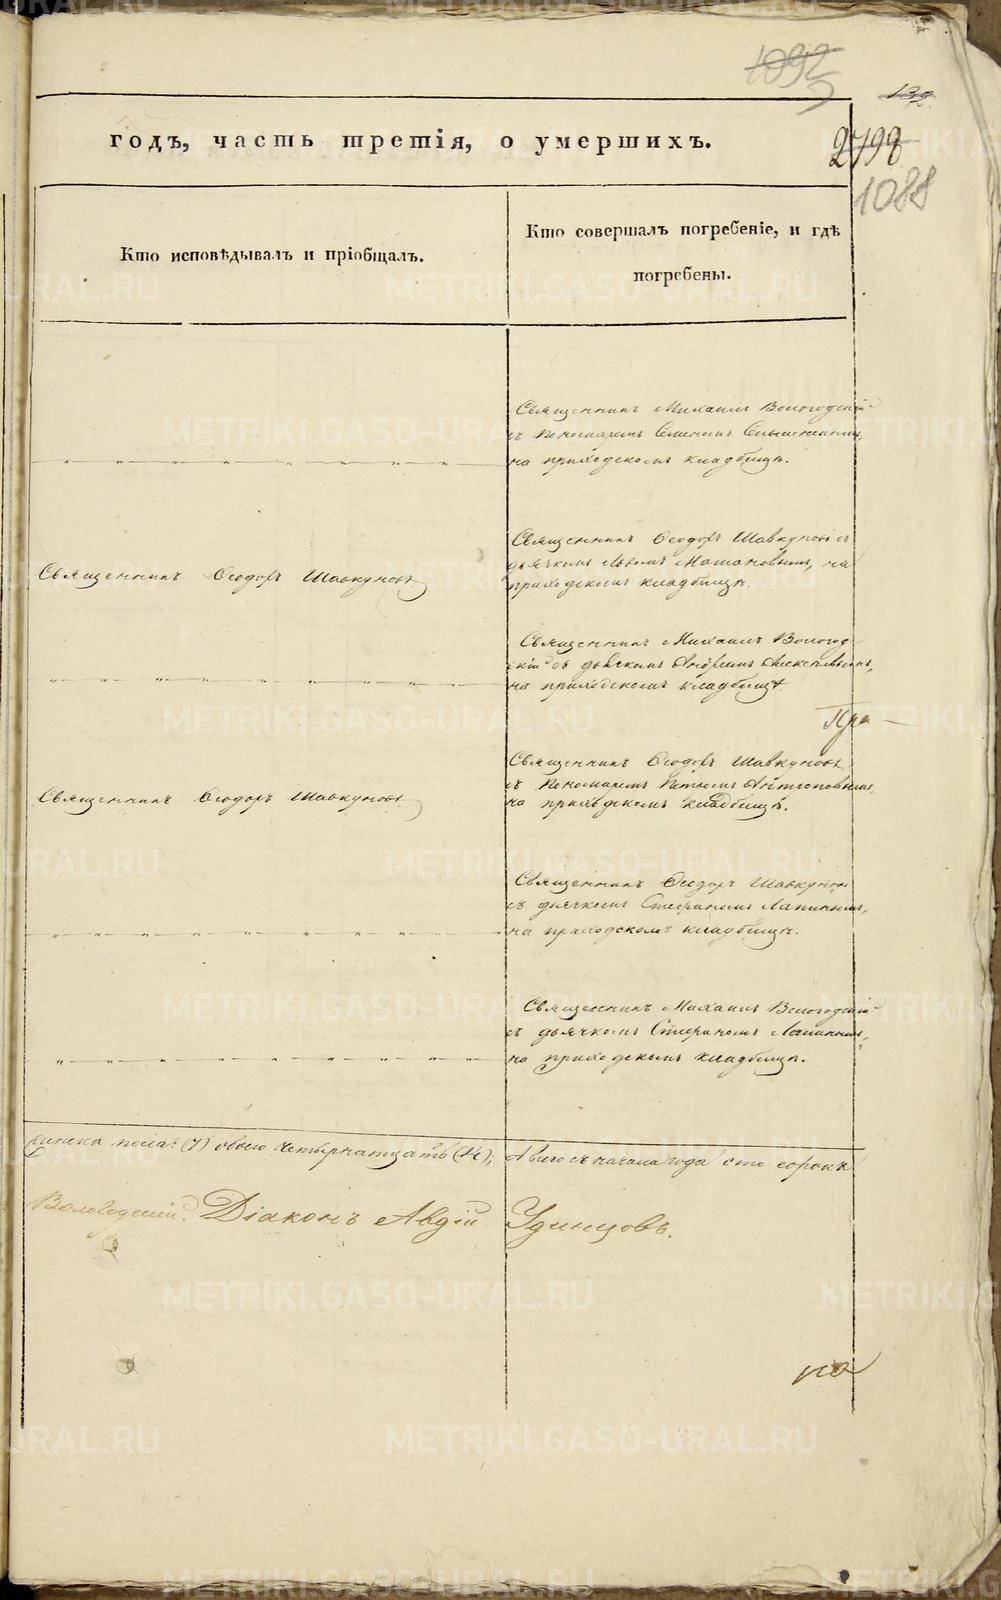 1092
5
132
годъ, часть третія, о умершихъ.
2798
1088
Кто исповѣдывалъ и пріобщалъ.
Кто совершалъ погребеніе, и гдѣ
погребены.
Священникъ Михаилъ Вологодскій
съ Пономаремъ Семеномъ
на приходскомъ кладбищѣ.
Священникъ Ѳеодоръ Шавкуновъ
Священникъ Ѳеодоръ Шавкуновъ съ
дьячкомъ Львомъ на
приходскомъ кладбищѣ.
Священникъ Михаилъ Вологод-
скій съ дьячкомъ Андреемъ Алексѣевымъ,
на приходскомъ кладбищѣ.
Пра-
Священникъ Ѳеодоръ Шавкуновъ
Священникъ Ѳеодоръ Шавкуновъ
съ Пономаремъ Петромъ Антроповымъ,
на приходскомъ кладбищѣ.
Священникъ Ѳеодоръ Шавкуновъ
съ дьячкомъ Стефаномъ Лапинымъ,
на приходскомъ кладбищѣ.
Священникъ Михаилъ Вологодскій
съ дьячкомъ Стефаномъ Лапинымъ,
на приходскомъ кладбищѣ.
женска пола: (7) обоего четырнатцать (14), А всего съ начала года сто сорокъ
Вологодскій. Діаконъ Авдій Удинцовъ.
METRIKI.GASO-URAL.RU